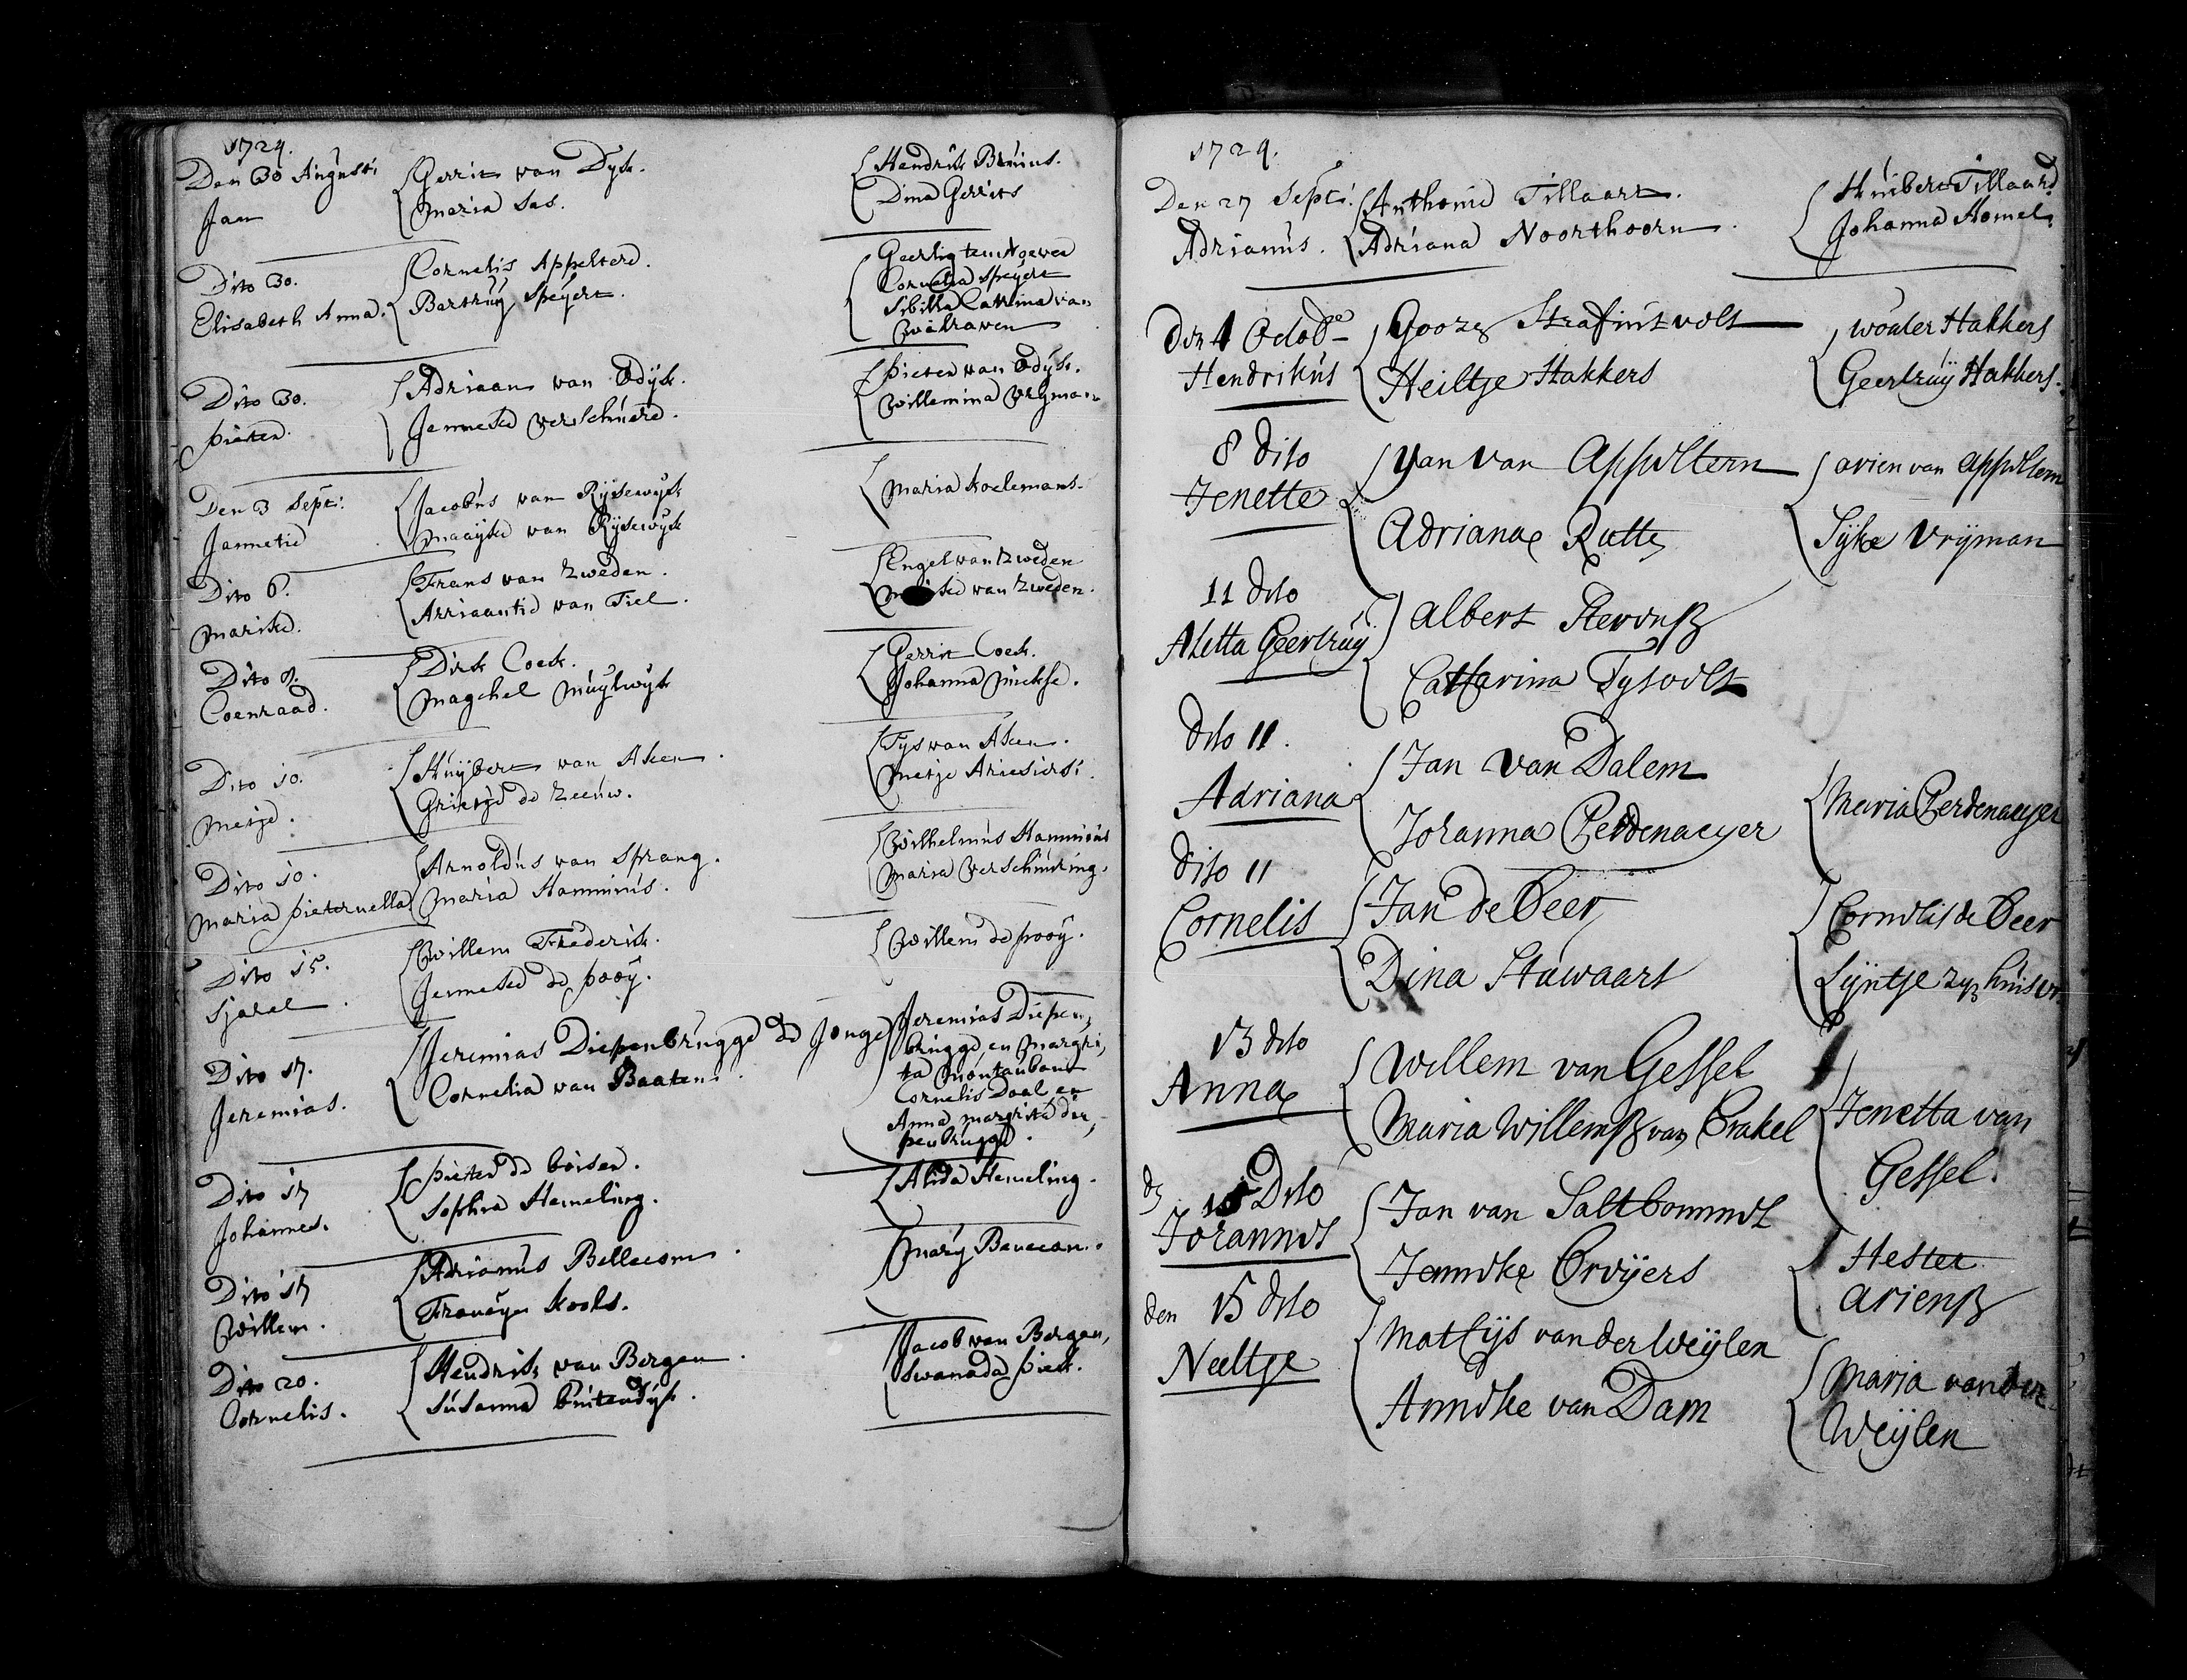 1729.
Den 30 Augusti Gerrit van Dyk. Hendrik Bruins.
Jan Maria Sas. Dina Gerrits
Dito 30. Cornelis Appeltere. Geerlig
Elisabeth Anna. Bartruy Speyert. Cornelia Speyert
Sibilla Catrina van
Walraven
Dito 30. Adriaan van Dyk. Pieter van Dyk.
Pieter. Jenneke Verschuere. Willemina Vryman
Den 3 Sept: Jacobus van Rysewyk Maria Koelemans.
Jannetie Maayke van Rysewyk
Dito 6. Frans van Zweden. Engel van Zweden
Marike. Arriaantie van Tiel. van Zweden.
Dito 8. Dirk Coek. Gerrit Coek.
Coenraad. Magchel Muylwyk Johanna
Dito 10. Huybert van Aken. Tys van Aken.
Metje. Grietje de Zeeuw. Metje
Dito 10. Arnoldus van Sprang. Wilhelmus Hamminus
Maria Pieternella Maria Hamminus. Maria Verschuring.
Dito 15. Willem Frederik. Willem de Pooy.
Sjarel Jenneke de Pooy.
Dito 17. Jeremias Diepenbrugge de Jonge Jeremias Diepen,
Jeremias. Cornelia van Baaten. brugge en Margri,
ta Montaubant
Cornelis Daal en
Anna Margrita Die,
penbrugge.
Dito 17 Pieter de Boiser. Alida Hemeling.
Johannes. Sophia Hemeling.
Dito 17 Adrianus Bellecom Mary
Willem. Kools.
Dito 20. Hendrik van Bergen. Jacob van Bergen,
Cornelis. Susanna Buitendyk. Swanada Piek.
1729.
Den 27 Sept: Anthonie Tillaart. Huibert Tillaard
Adrianus. Adriana Noorthoorn. Johanna Homel.
Den 4 Octob Goozen wouter Hakkers
Hendrikus Heiltje Hakkers Geertruy Hakkers.
8 dito Yan van Appeltern arien van appeltern
Jenette Adriana Rutten Sijke Vrijman
11 dito albert Stevens
Aletta Geertruy Catharina Tysvelt
dito 11. Jan van Dalem Maria Perdenaeyer
Adriana Johanna Perdenaeyer
dito 11 Jan de Beer Cornelis de Beer
Cornelis Dina Stawaart Lijntje zyn huisvr.
13 dito Willem van Gessel Jenetta van
Anna Maria Willemsz van Brakel Gessel.
dn 15 Dito Jan van Saltbommel Hester
Johannes Janneke Orvijers ariensz
den 15 dito Mathijs van der Weijlen Maria vander
Neeltje Anneke van Dam Weijlen